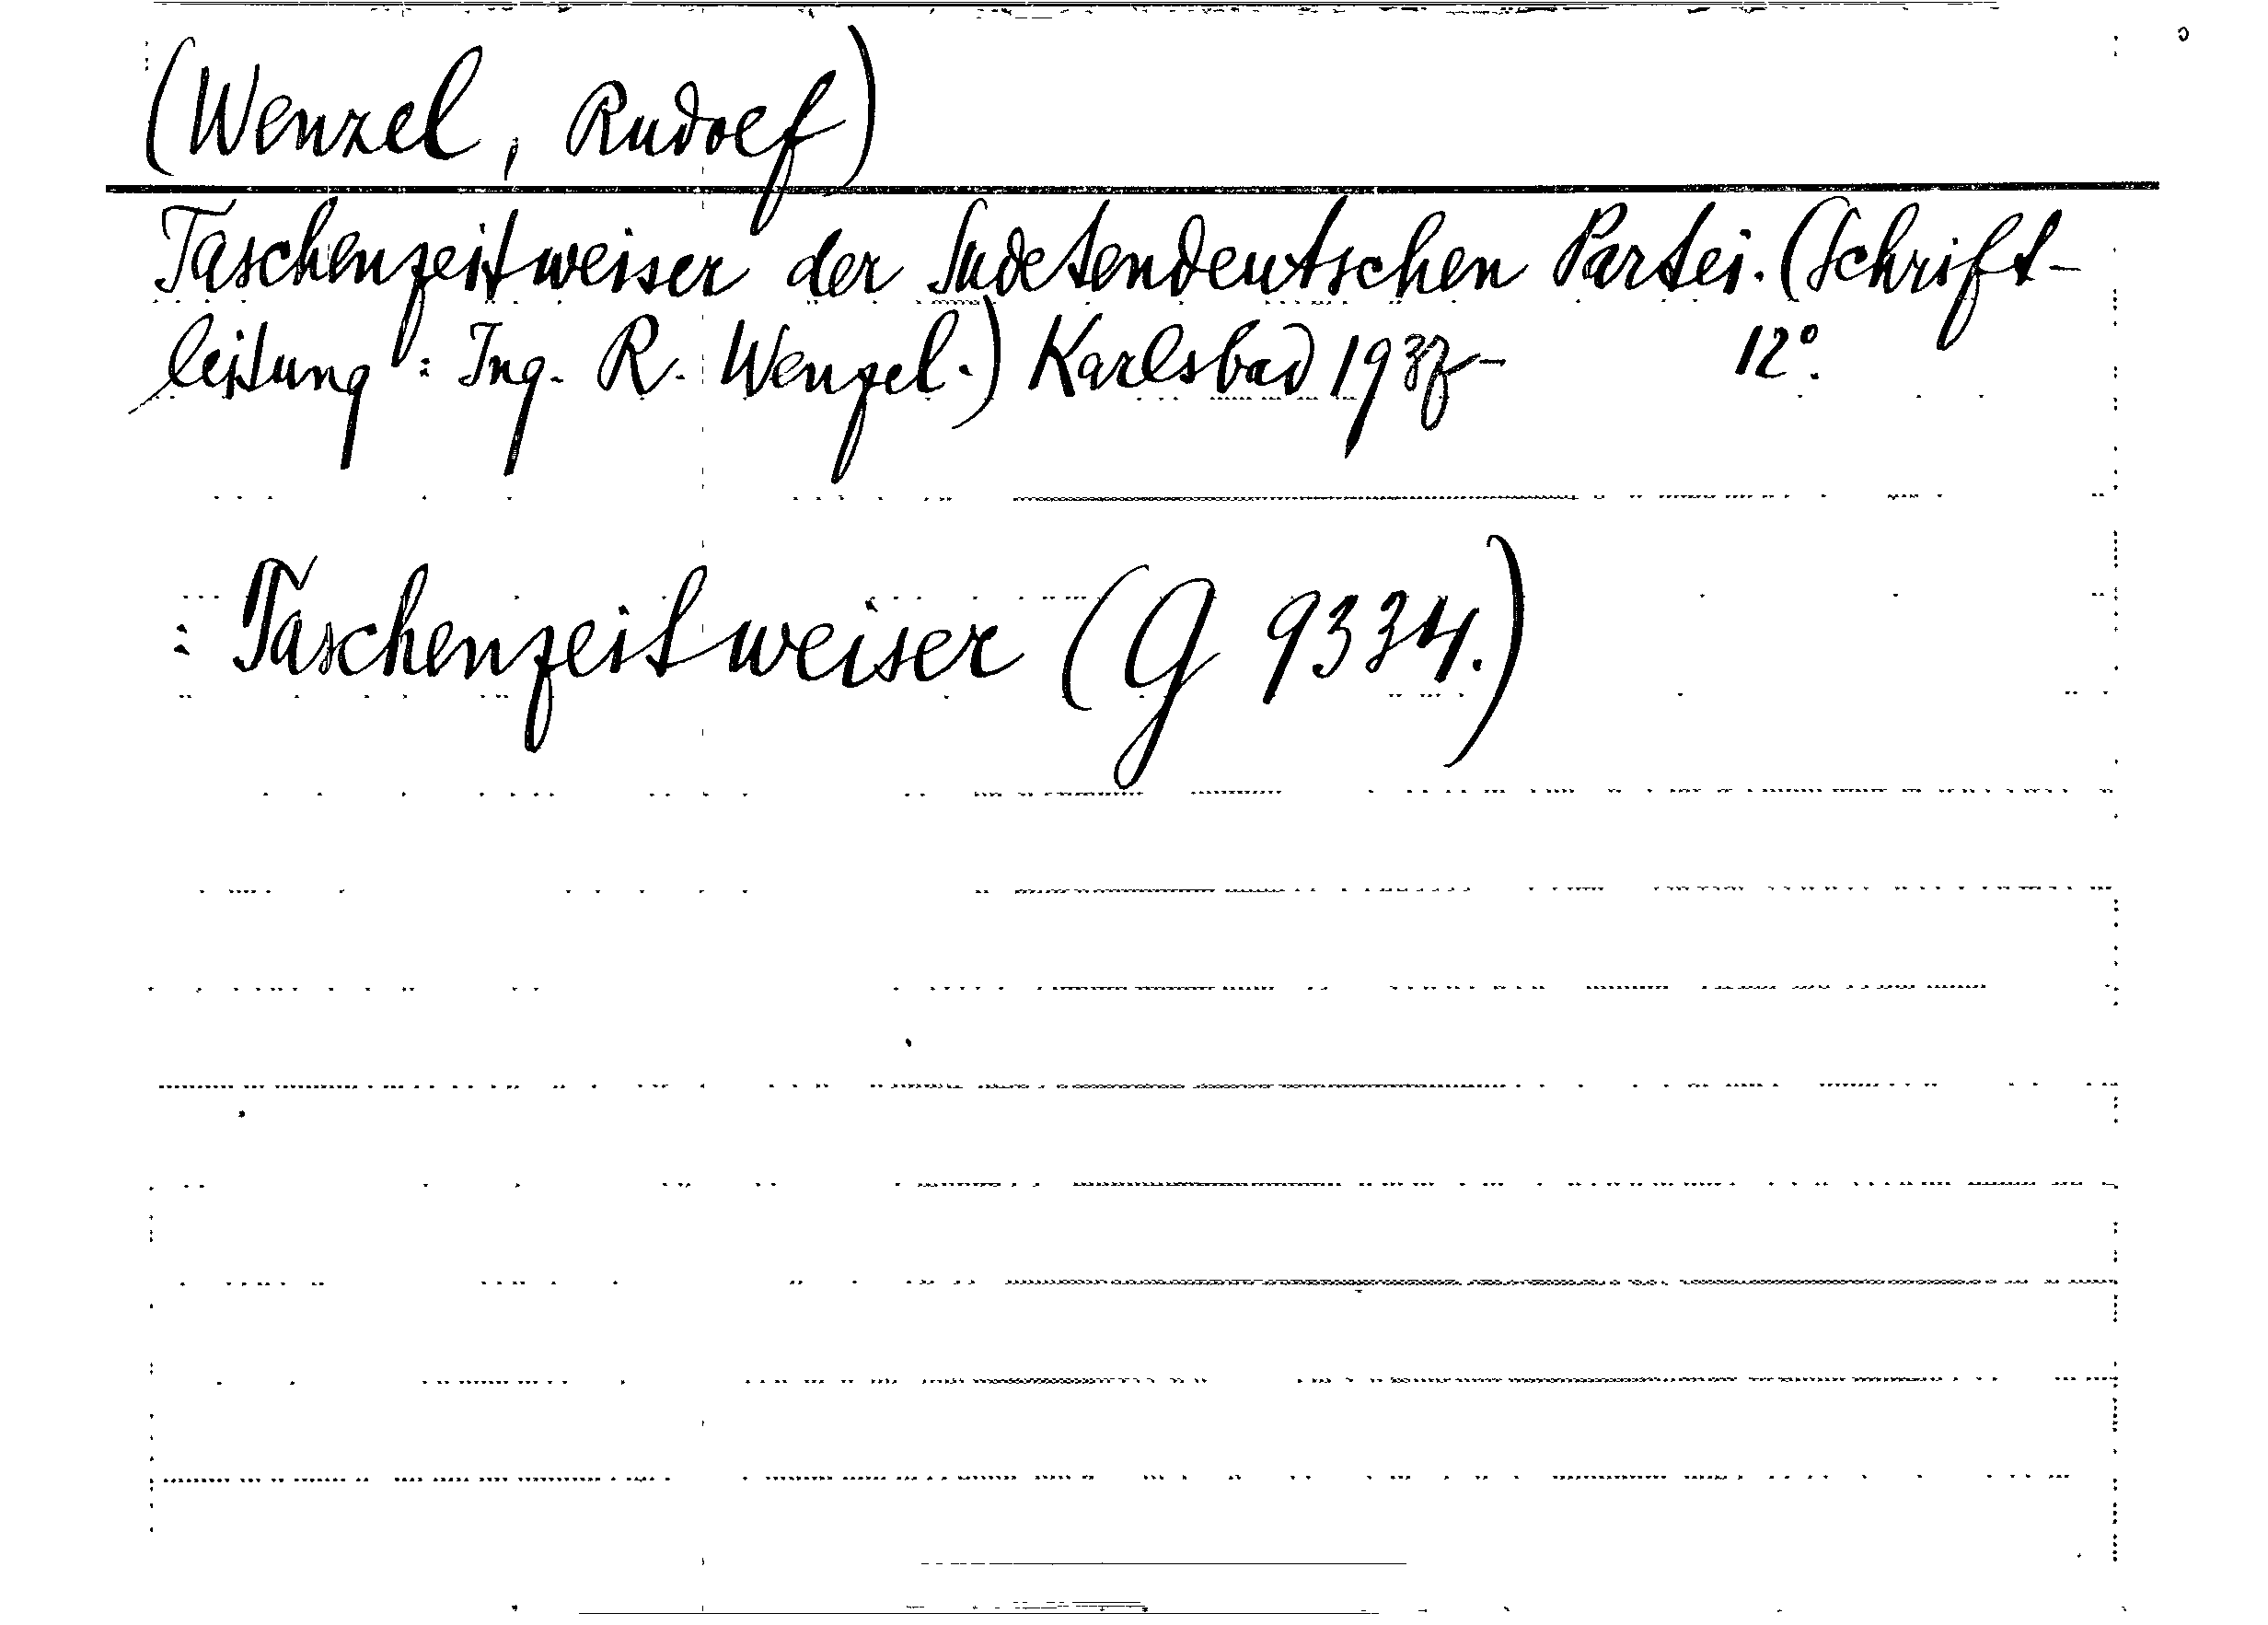 (Wenzel, Rudolf)
Taschenzeitweiser der Sudetendeutschen Partei. (Schrift-
leitung: Ing. R. Wenzel.) Karlsbad 1937- 12°.
: Taschenzeitweiser (G 9334.)